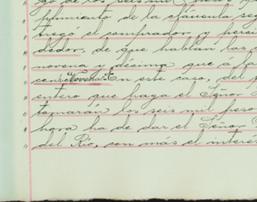 go de los seis mil
plimiento de la cláusula se
tregó el comprador y
dedor, de que hablan las
novena y décima que á la
En este caso, del
entero que haga el Señor
tomarán los seis mil pesos
hora ha de dar el Señor
del Río, con más el interés